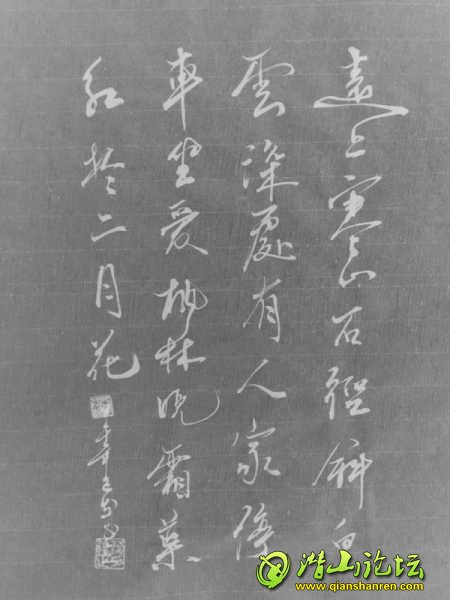 遠上寒山石徑斜白
雲深處有人家停
車坐愛楓林晚霜葉
紅於二月花
潜山论坛
www.qianshanren.com